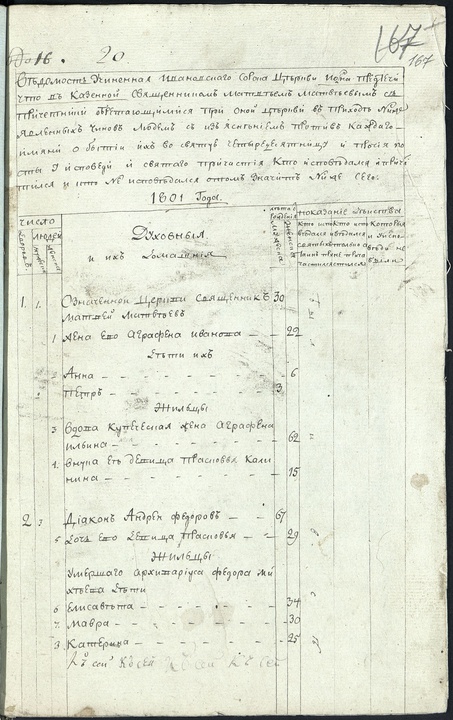 До 16. 20
167
167
Ведомость Учиненная Ивановскаго Сорока Церкви Иоанна Предтечи
что в Казенной Священником Матвеем Матвеевым съ
Причетники обретающимися при оной церкви в приходе ниже
явленных чинов людем съ изъяснениемъ противъ каждаго
имяни о бытии ихъ во святую четыредесятницу и прочия по
сты У исповеди и святаго причастия Кто исповедался и прича
стился и кто не исповедался о томъ значитъ Ниже сего.
1801 Года.
число
дворовъ
людей
Духовныя
и ихъ домашния
мужеска
женска
показание действа
1. 1. Означенной Церкви священникъ 30
Матвей Матвеевъ
1 Жена его Аграфена иванова 29
Дети ихъ
2 Анна 6
2 Петръ 3
Жильцы
3 вдова Купеческая жена Аграфена
ильина 62
4. внука Ея девица Прасковья Кали
нина 15
2 3 Диаконъ Андрей Федоровъ 67
5 Дочь его Девица Прасковья 29
Жильцы
Умершаго архиварiуса федора Ми
хеева Дети
6 Елисавета 34
7. Мавра 30
8 Катерина 25